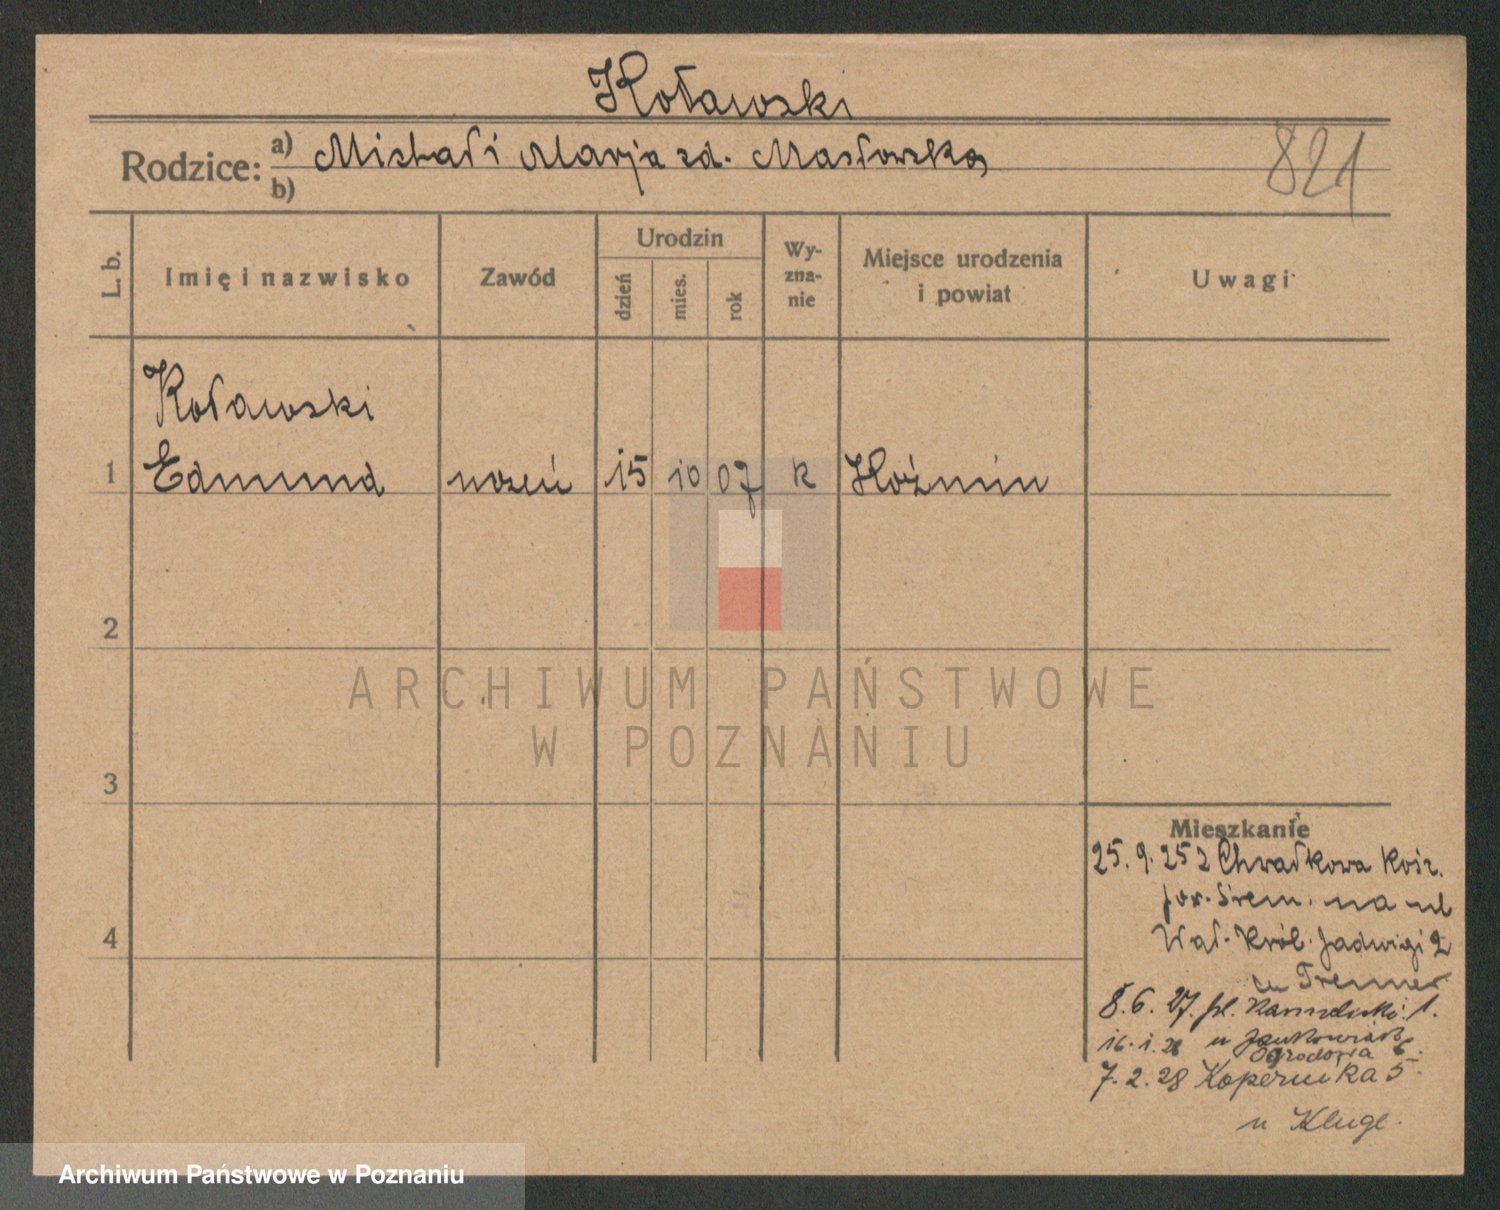 Koławski
Rodzice: a) Michał i Marja zd. Masłowska
b)
821
L. b.
Imię i nazwisko
Zawód
Urodzin
dzień
mies.
rok
Wy-
zna-
nie
Miejsce urodzenia
i powiat
Uwagi
Koławski
1 Edmund uczeń 15 10 07 k Koźmin
2
3
4
ARCHIWUM PAŃSTWOWE
W POZNANIU
Mieszkanie
25. 9. 25 z Chwałkowa Kośc.
pow. Śrem. na ul
Wał. Król. Jadwigi 2
u
8. 6. 27. pl. Karmelicki. 1.
16. 1. 28 u Jankowiak
Ogrodowa 6.
7. 2. 28 Kopernika 5
u Kluge.
Archiwum Państwowe w Poznaniu